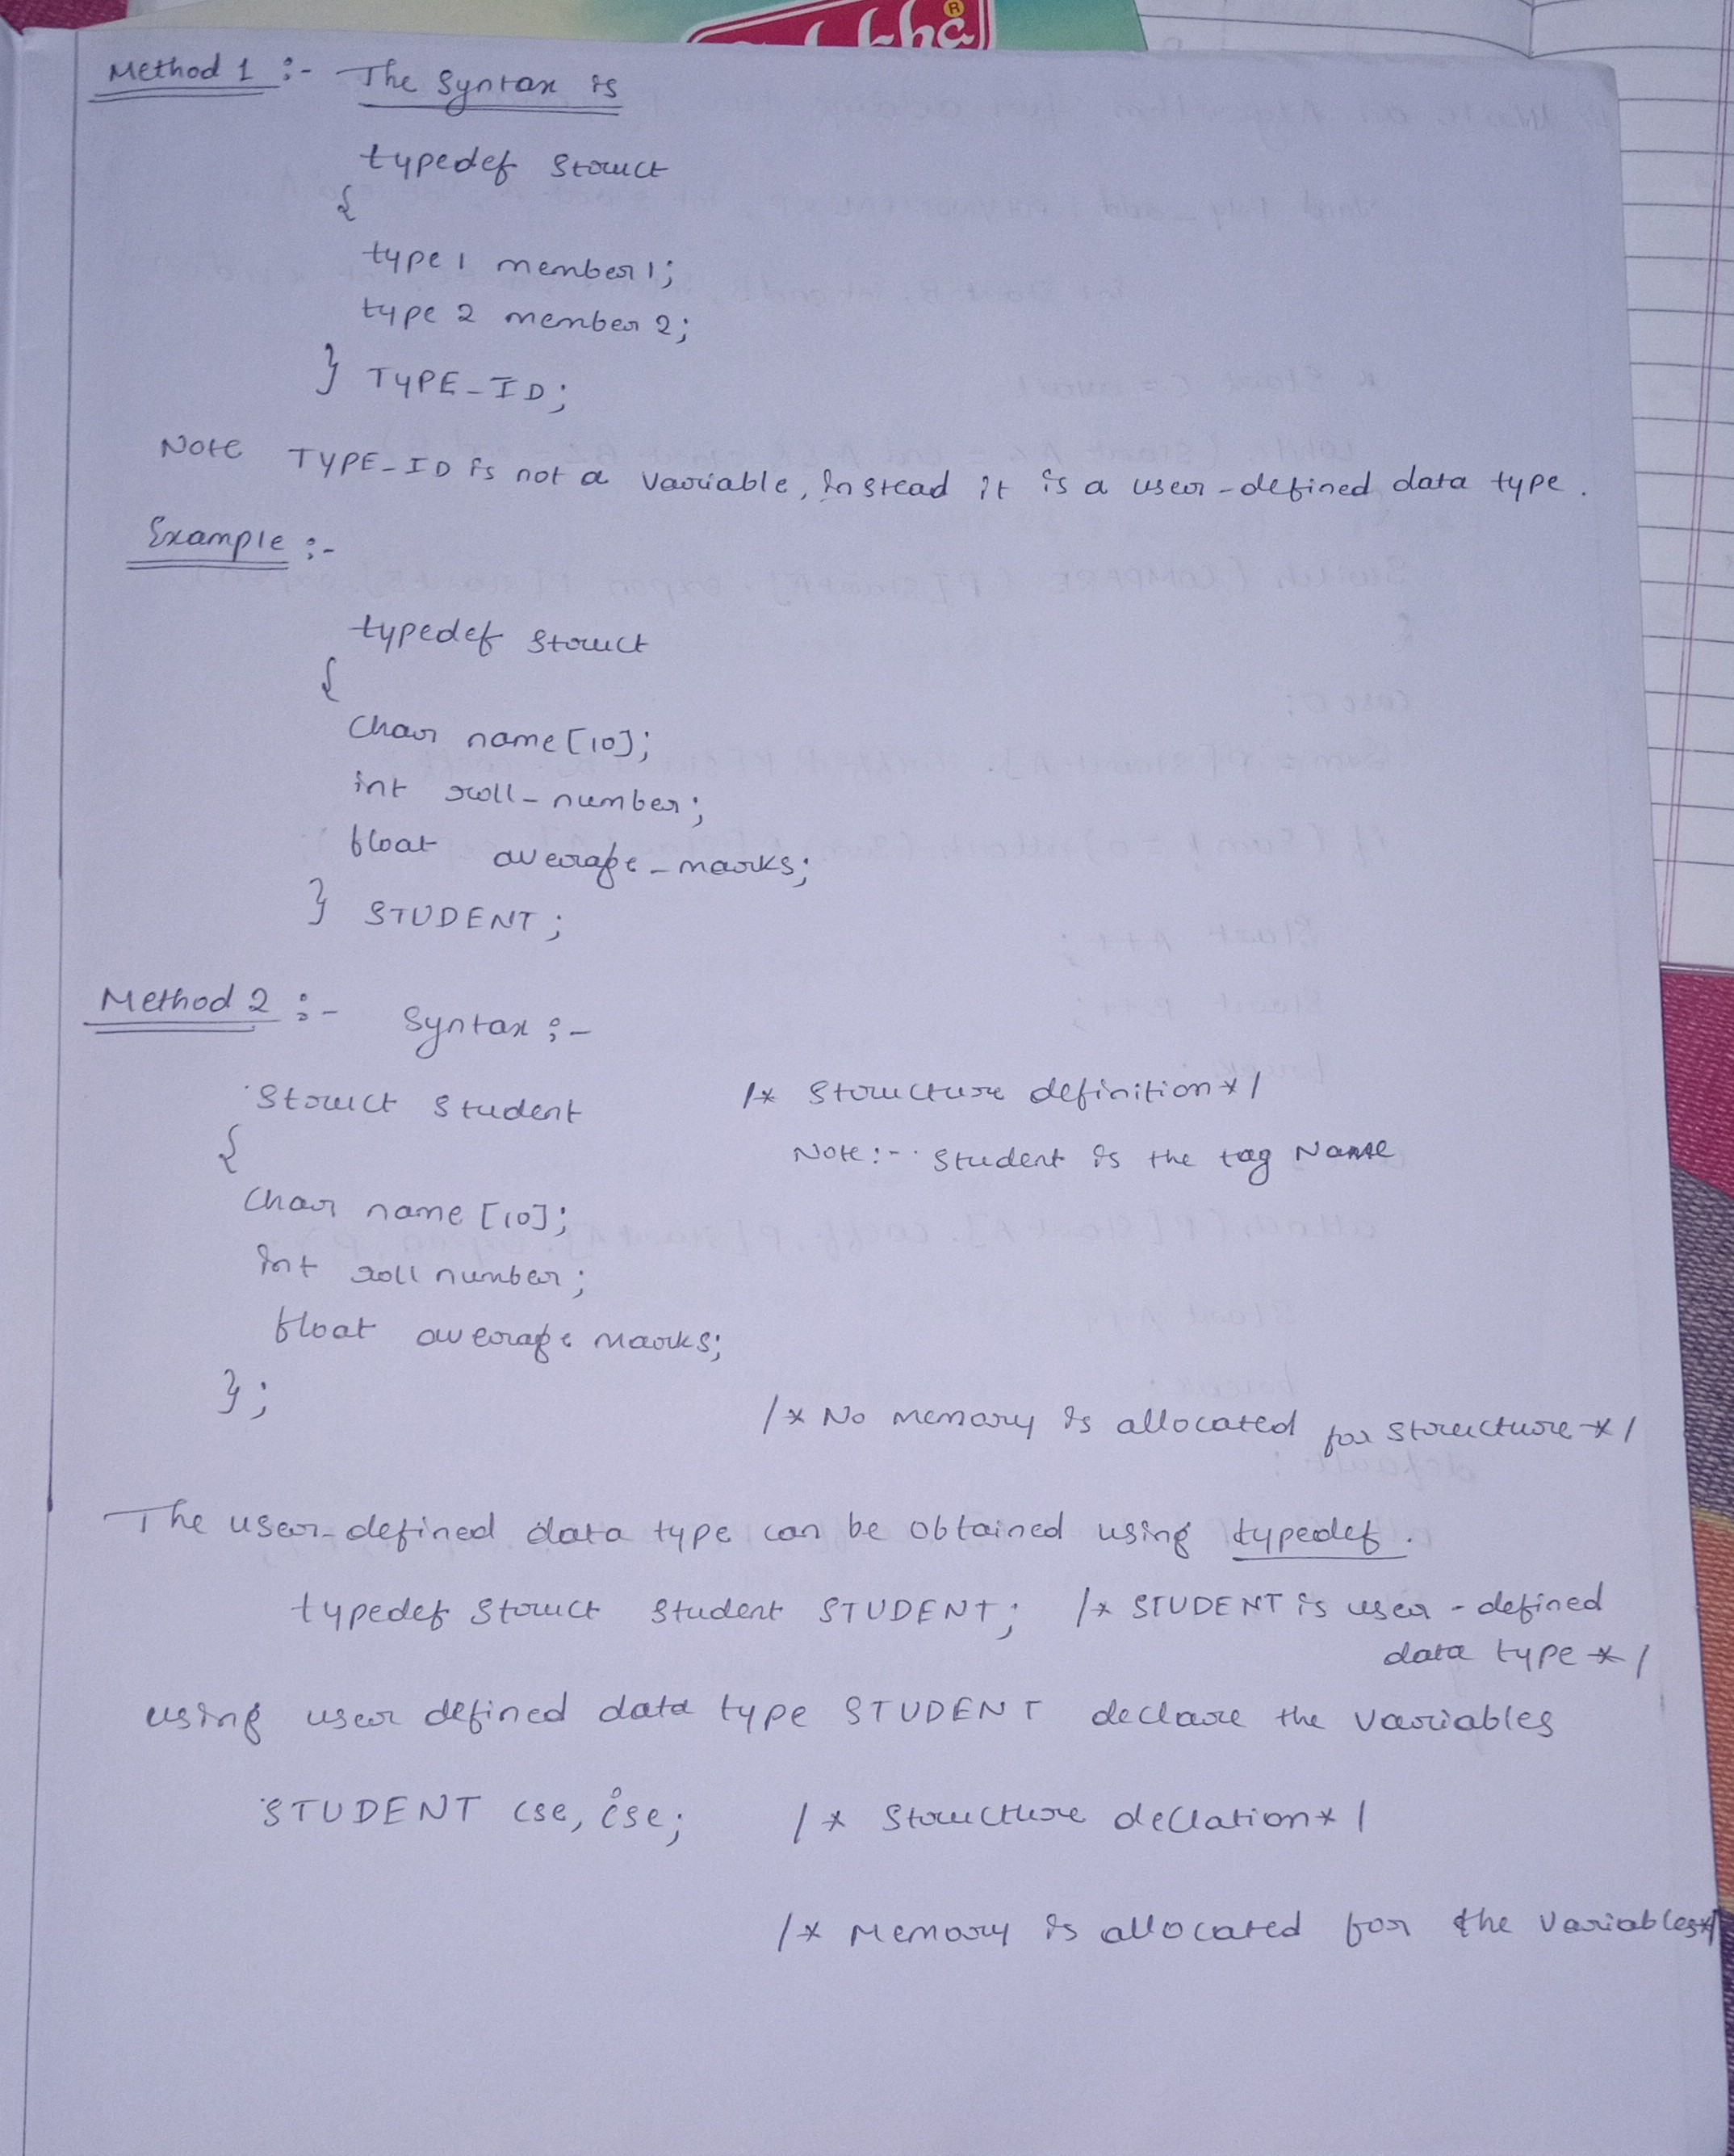 Method 1 :- The Syntax is
typedef struct
{
type 1 member 1;
type 2 member 2;
} TYPE-ID;
Note TYPE-ID is not a variable, Instead it is a user-defined data type.
Example :-
typedef struct
{
char name [10];
int roll-number;
float average-marks;
} STUDENT;
Method 2 :- Syntax :-
Struct Student /* Structure definition */
{ Note :- Student is the tag Name
Char name [10];
Int roll number;
float average Marks;
};
/* No memory is allocated for structure */
The user-defined data type can be obtained using typedef.
typedef struct student STUDENT; /* STUDENT is user-defined
data type */
using user defined data type STUDENT declare the variables
STUDENT cse, ise; /* Structure decllation */
/* Memory is allocated for the variables */